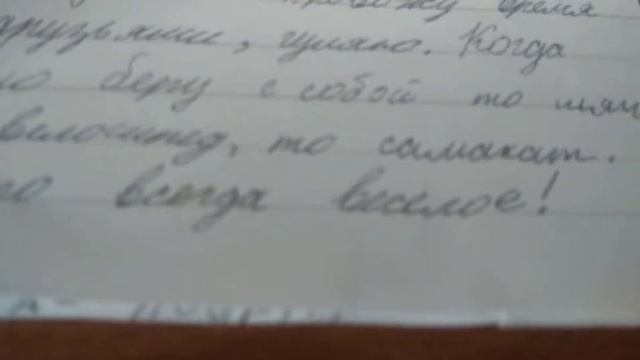 провожу время
друзьями, гуляю. Когда
беру с собой то мяч
велосипед, то самокат.
всегда веселое!